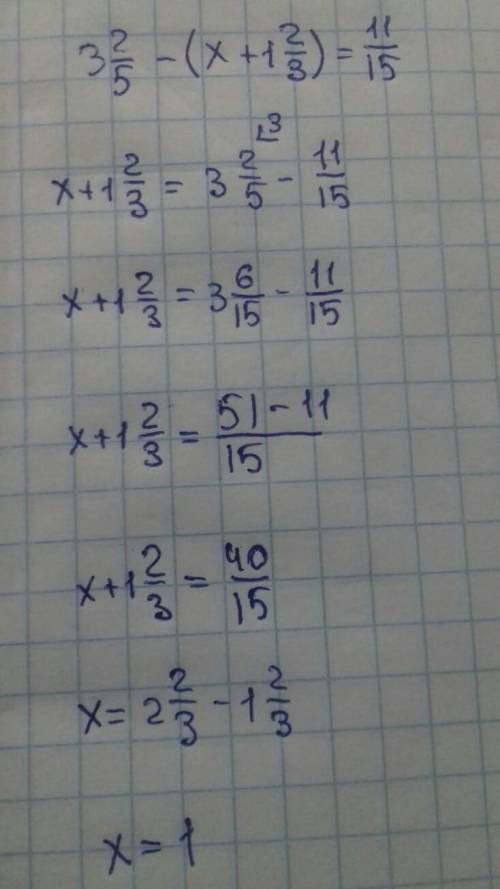 3 2/5 - (x + 1 2/3) = 11/15
x + 1 2/3 = 3 2/5 ⌊3 - 11/15
x + 1 2/3 = 3 6/15 - 11/15
x + 1 2/3 = (51 - 11)/15
x + 1 2/3 = 40/15
x = 2 2/3 - 1 2/3
x = 1